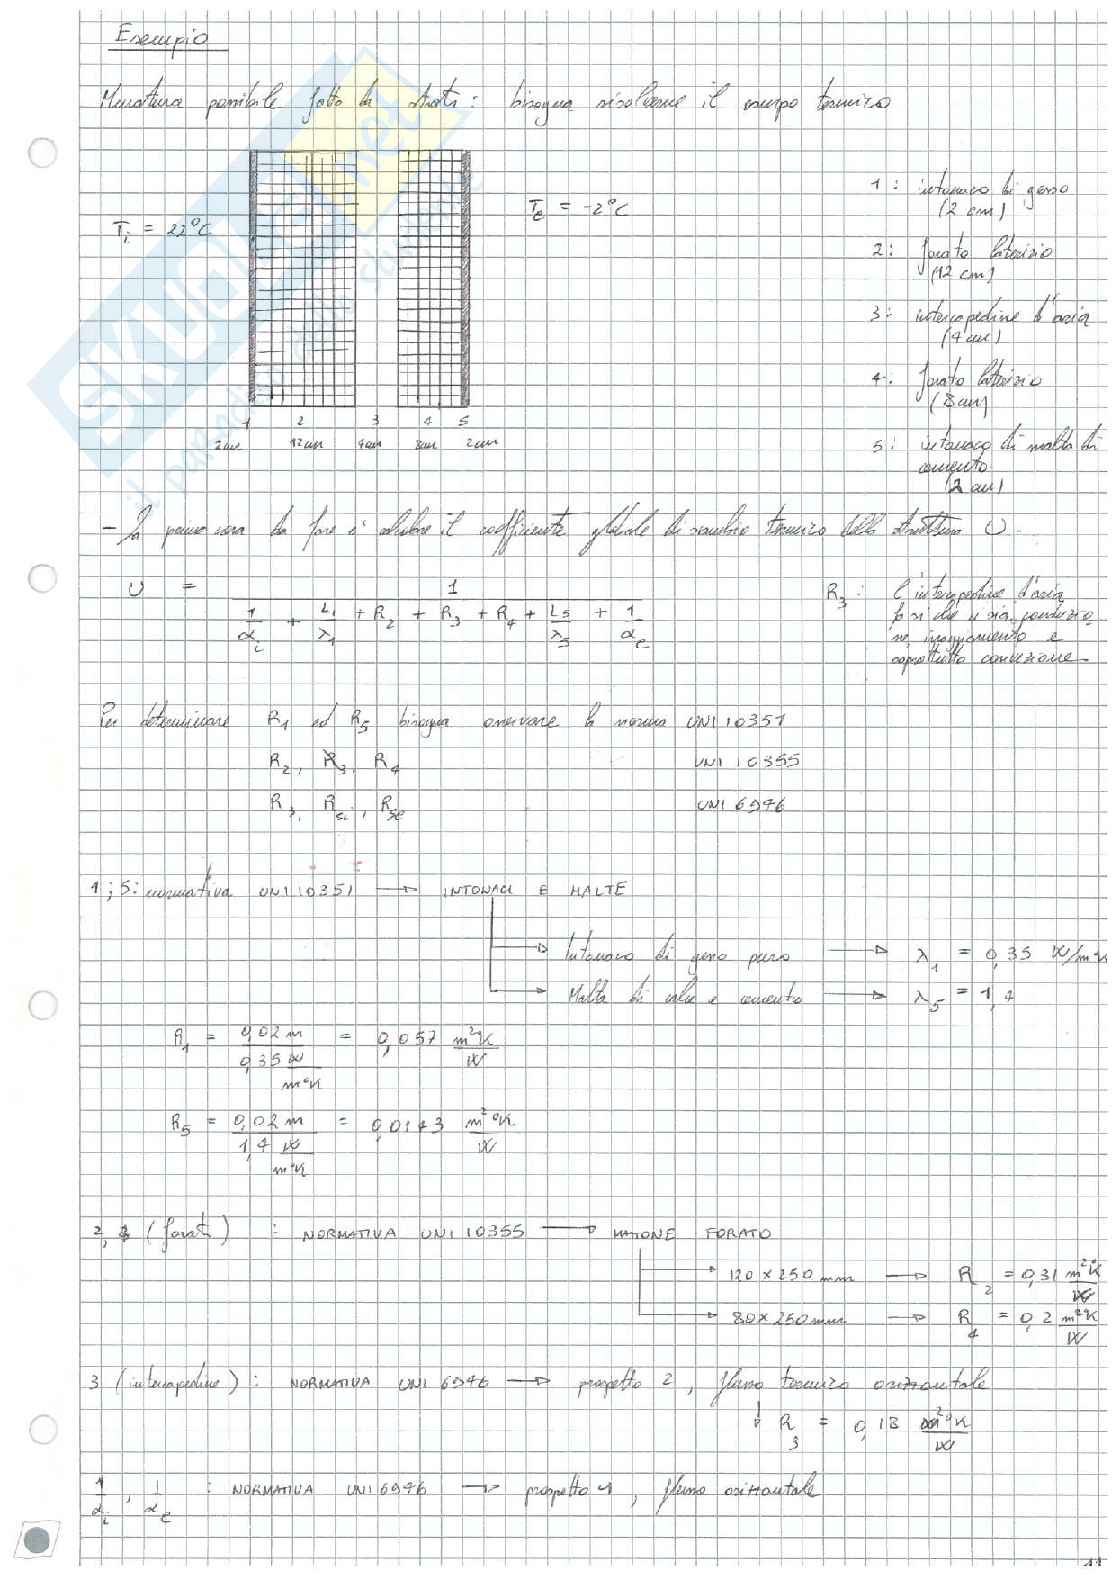 Esempio
Muratura possibile fatta da strati: bisogna risolverne il campo termico
Ti = 22°C
Te = -2°C
1: intonaco di gesso
(2 cm)
2: forato laterizio
(12 cm)
3: intercapedine d'aria
(4 cm)
4: forato laterizio
(8 cm)
5: intonaco di malta di
cemento
(2 cm)
1 2 3 4 5
2cm 12cm 4cm 8cm 2cm
- La prima cosa da fare è calcolare il coefficiente globale di scambio termico della struttura U
U = 1 / (1/αi + L1/λ1 + R2 + R3 + R4 + L5/λ5 + 1/αe)
R3: l'intercapedine d'aria
fa sì che ci sia conduzio
ne, irraggiamento e
soprattutto convezione
Per determinare R1 ed R5 bisogna osservare la norma UNI 10351
R2, R4 UNI 10355
R3, Rsi, Rse UNI 6946
1;5: normativa UNI 10351 → INTONACI E MALTE
Intonaco di gesso puro → λ1 = 0,35 W/m°K
Malta di calce e cemento → λ5 = 1,4
R1 = 0,02 m / 0,35 W/m°K = 0,057 m²°K/W
R5 = 0,02 m / 1,4 W/m°K = 0,0143 m²°K/W
2, 4 (forati) : NORMATIVA UNI 10355 → MATTONE FORATO
120 x 250 mm → R2 = 0,31 m²°K/W
80 x 250 mm → R4 = 0,2 m²°K/W
3 (intercapedine): NORMATIVA UNI 6946 → prospetto 2, flusso termico orizzontale
↓ R3 = 0,18 m²°K/W
1/αi, 1/αe : NORMATIVA UNI 6946 → prospetto 1, flusso orizzontale
11
SKUOLA.net
il paradiso dello studente